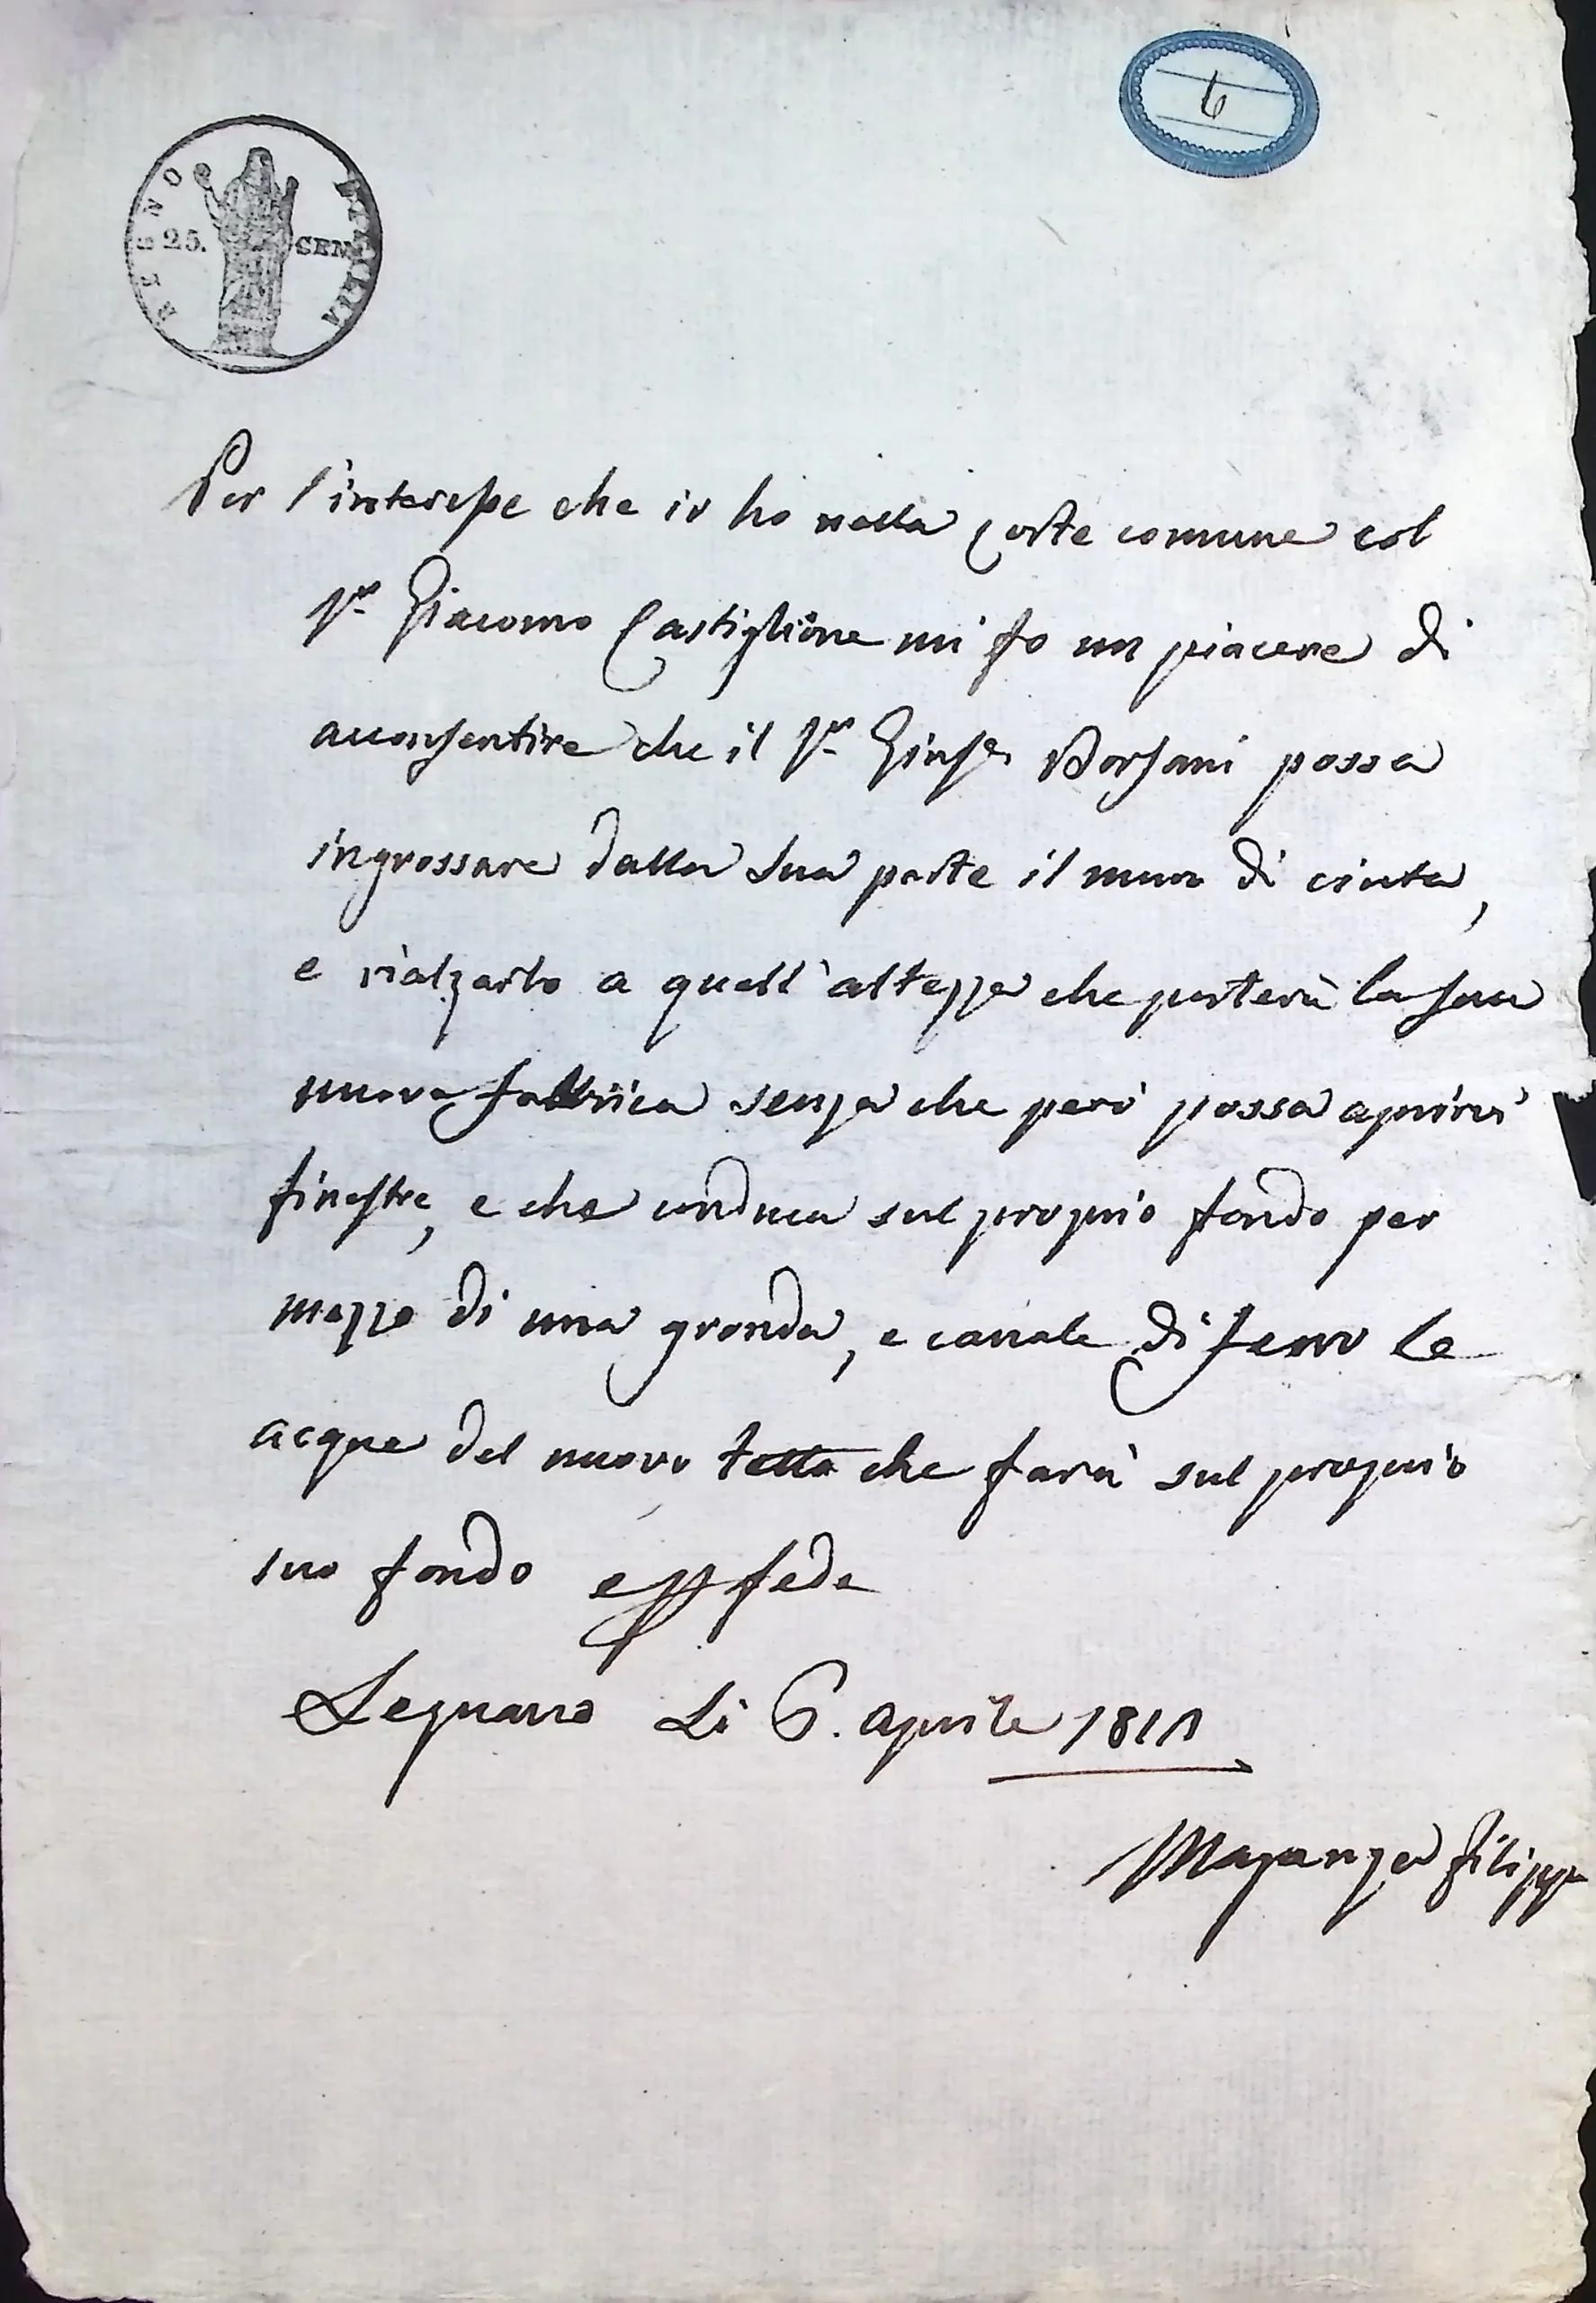 6
REGNO D'ITALIA
25. CEN
Per l'interesse che io ho nella Corte comune col
Sr. Giacomo Castiglione mi fo un piacere di
acconsentire che il Sr. Giuse. Borsani possa
ingrossare dalla sua parte il muro di cinta,
e rialzarlo a quell'altezza che porterà la sua
nuova fabbrica senza che però possa aprirvi
finestre, e che conduca sul proprio fondo per
mezzo di una gronda, e canale di ferro le
acque del nuovo tetto che farà sul proprio
suo fondo e pp fede
Legnano Li 6. aprile 1811
Maganza Filippo